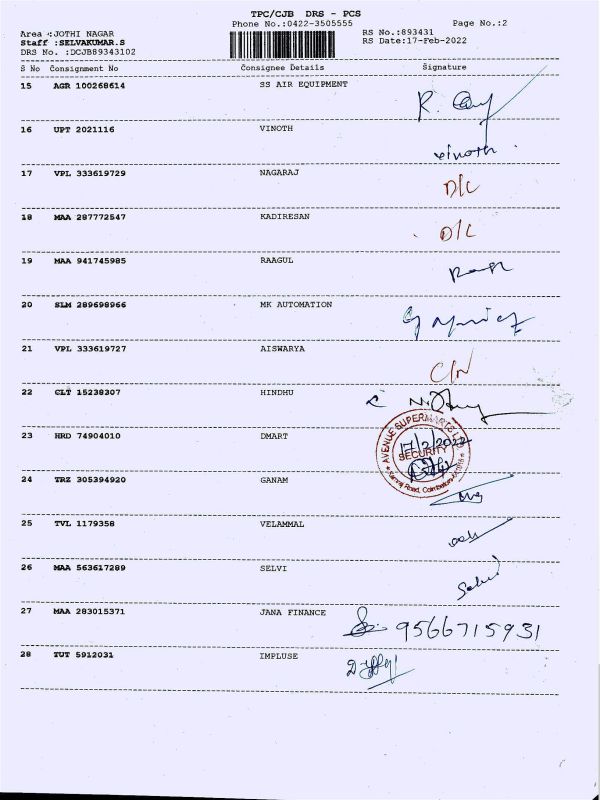 TPC/CJB DRS - PCS
Phone No.:0422-3505555
Page No.:2
Area :JOTHI NAGAR
Staff :SELVAKUMAR.S
DRS No. :DCJB89343102
RS No.:893431
RS Date:17-Feb-2022
S No Consignment No Consignee Details Signature
15 AGR 100268614 SS AIR EQUIPMENT
16 UPT 2021116 VINOTH vinoth
17 VPL 333619729 NAGARAJ D/C
18 MAA 287772547 KADIRESAN D/C
19 MAA 941745985 RAAGUL
20 SLM 289698966 MK AUTOMATION
21 VPL 333619727 AISWARYA C/N
22 CLT 15238307 HINDHU
23 HRD 74904010 DMART
AVENUE SUPERMARTS LTD
17/2/2022
SECURITY
24 TRZ 305394920 GANAM
25 TVL 1179358 VELAMMAL
26 MAA 563617289 SELVI Selvi
27 MAA 283015371 JANA FINANCE 9566715931
28 TUT 5912031 IMPLUSE